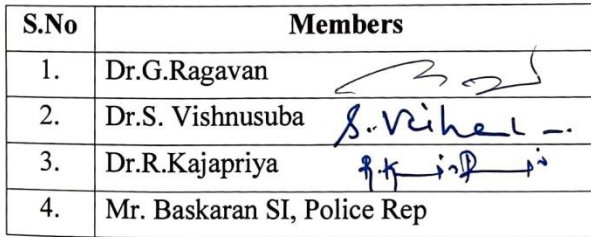 S.No Members
1. Dr.G.Ragavan
2. Dr.S. Vishnusuba
3. Dr.R.Kajapriya
4. Mr. Baskaran SI, Police Rep